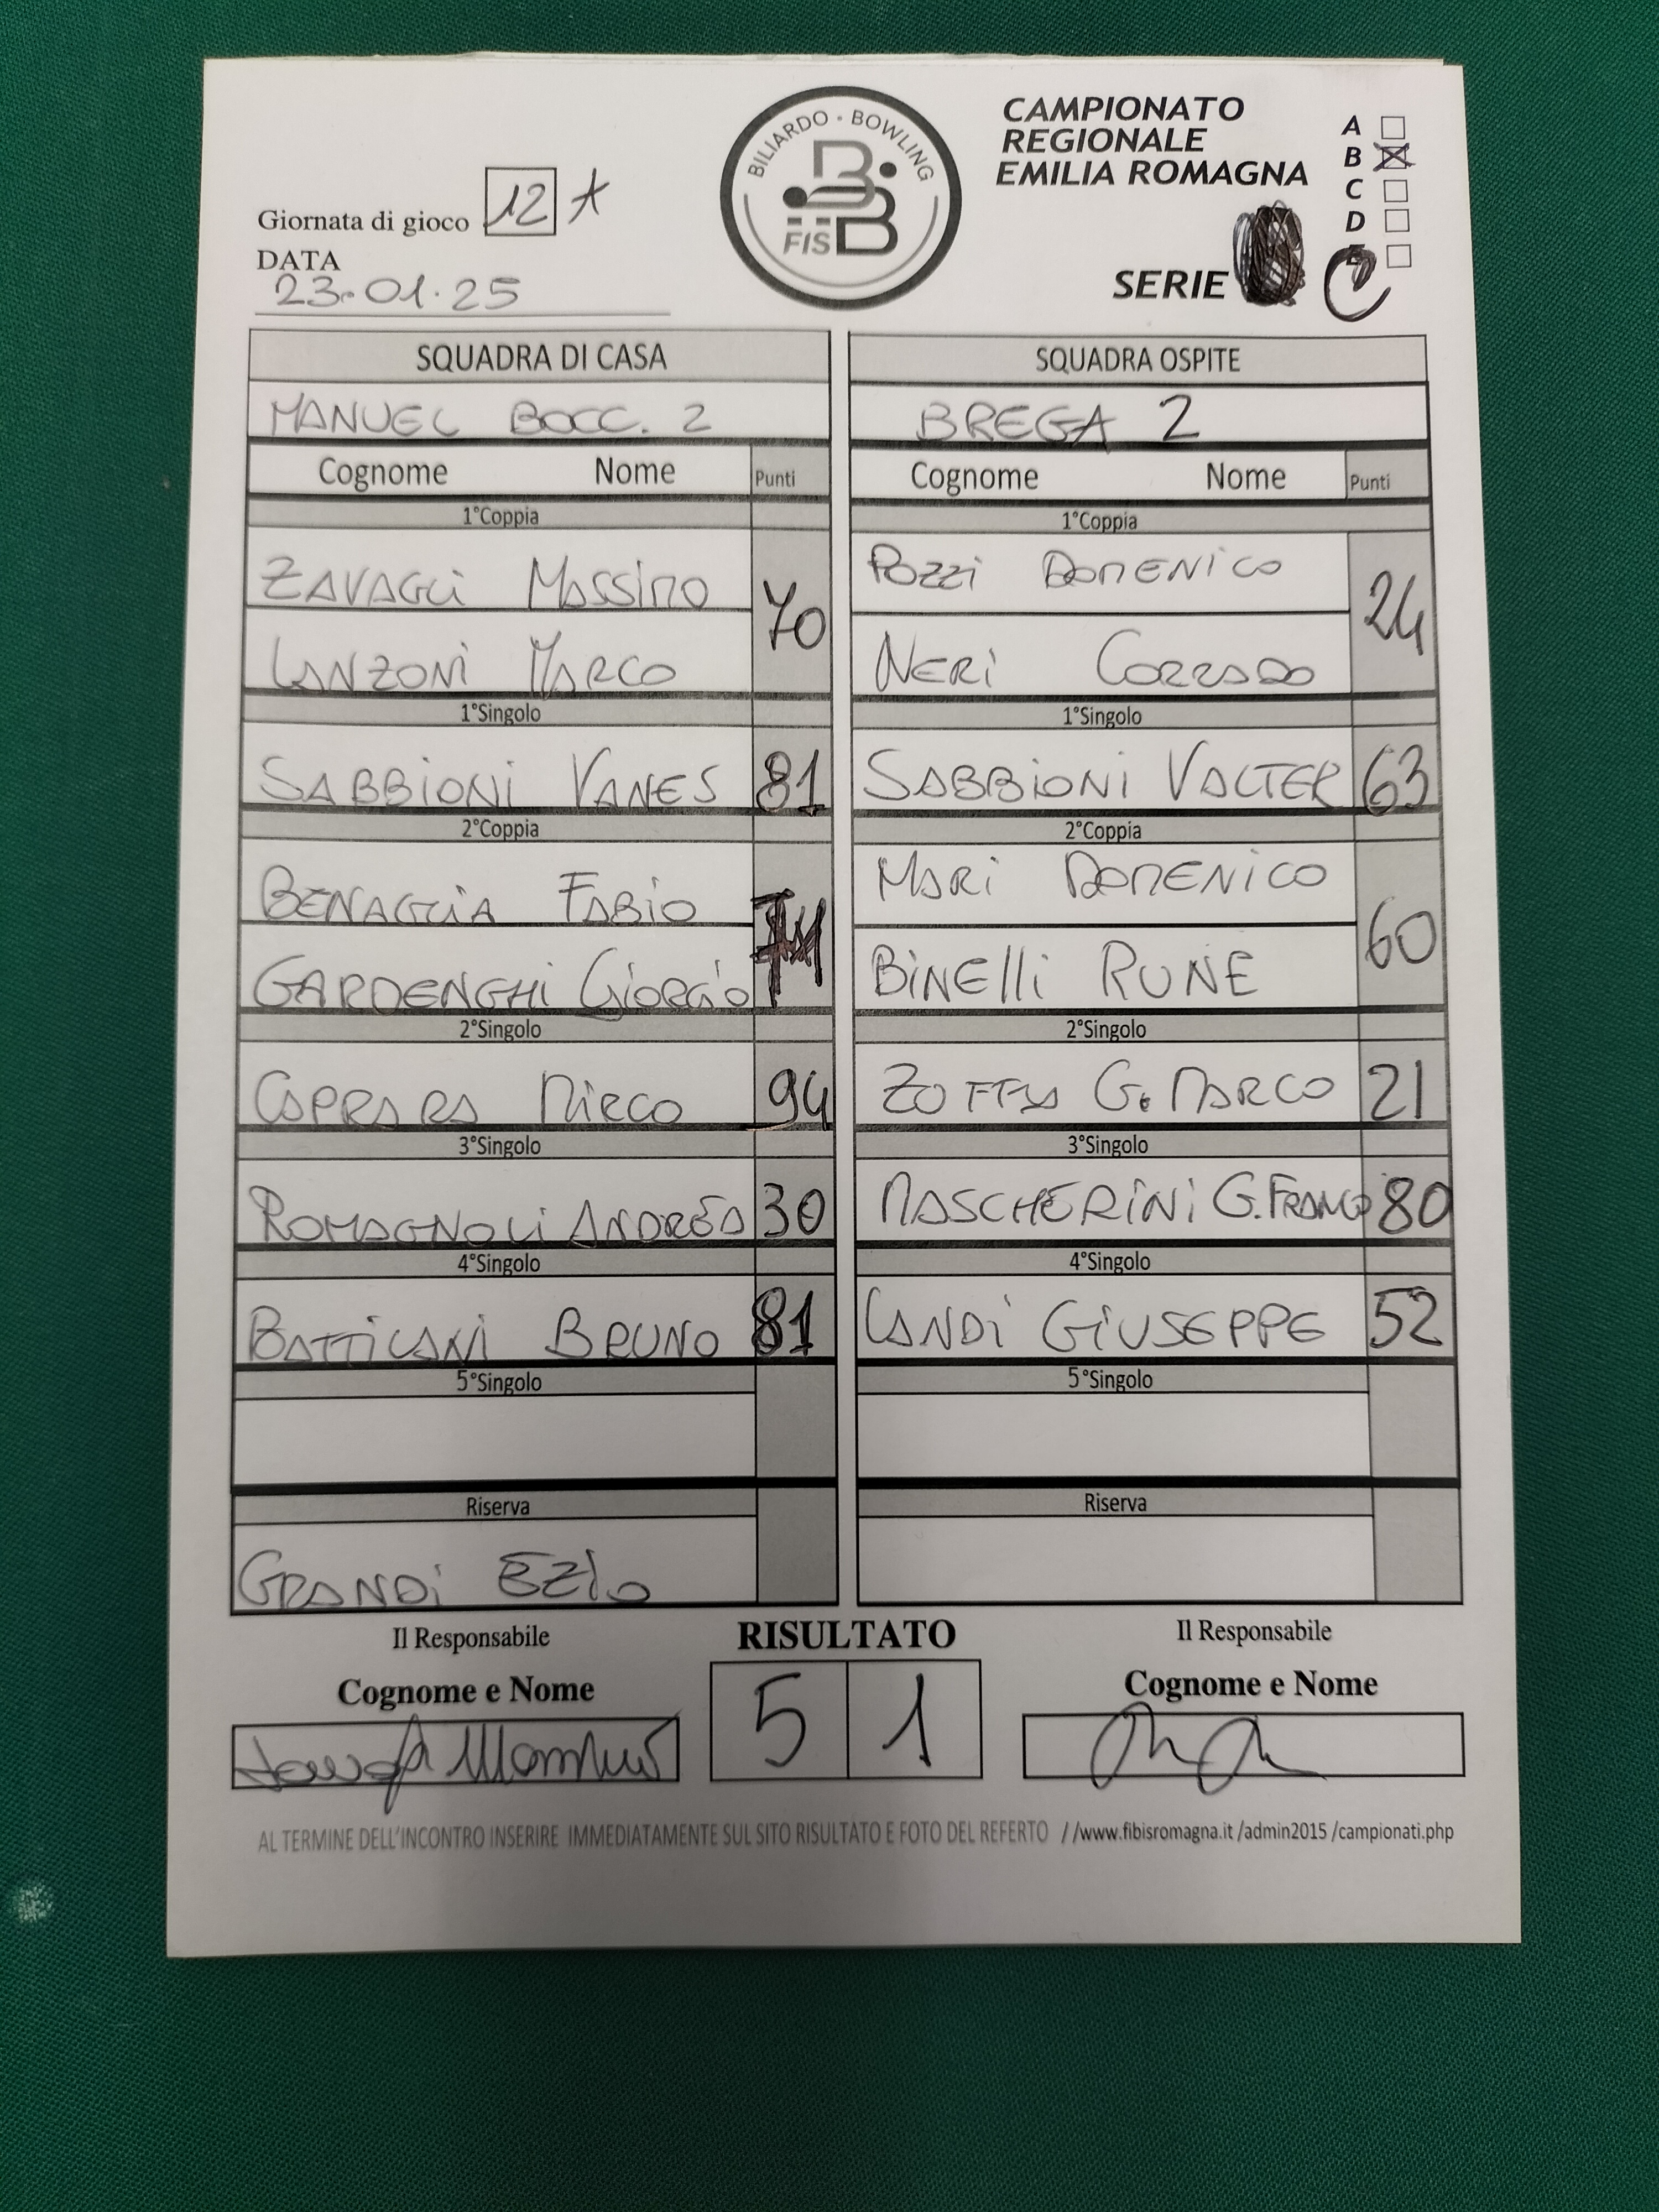 BILIARDO • BOWLING
FISBB
CAMPIONATO
REGIONALE
EMILIA ROMAGNA
A
B
C
D
SERIE C
Giornata di gioco 12^
DATA
23.01.25
SQUADRA DI CASA SQUADRA OSPITE
MANUEL BOCC. 2 BREGA 2
Cognome Nome Punti Cognome Nome Punti
1°Coppia 1°Coppia
ZAVAGLI MASSIMO 70 POZZI DOMENICO 24
LANZONI MARCO NERI CORRADO
1°Singolo 1°Singolo
SABBIONI VANES 81 SABBIONI VALTER 63
2°Coppia 2°Coppia
BENAGLIA FABIO MARI DOMENICO 60
GARDENGHI GIORGIO BINELLI RUNE
2°Singolo 2°Singolo
CAPRARA MIRCO 94 ZOFFA G. MARCO 21
3°Singolo 3°Singolo
ROMAGNOLI ANDREA 30 MASCHERINI G.FRANCO 80
4°Singolo 4°Singolo
BATTILANI BRUNO 81 LANDI GIUSEPPE 52
5°Singolo 5°Singolo
Riserva Riserva
GRANDI EZIO
Il Responsabile RISULTATO Il Responsabile
Cognome e Nome 5 1 Cognome e Nome
AL TERMINE DELL'INCONTRO INSERIRE IMMEDIATAMENTE SUL SITO RISULTATO E FOTO DEL REFERTO //www.fibisromagna.it /admin2015 /campionati.php